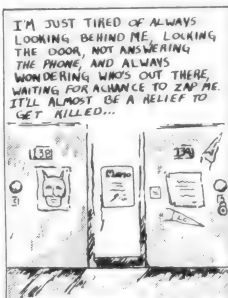 I'M JUST TIRED OF ALWAYS
LOOKING BEHIND ME, LOCKING
THE DOOR, NOT ANSWERING
THE PHONE, AND ALWAYS
WONDERING WHO'S OUT THERE,
WAITING FOR A CHANCE TO ZAP ME.
IT'LL ALMOST BE A RELIEF TO
GET KILLED...